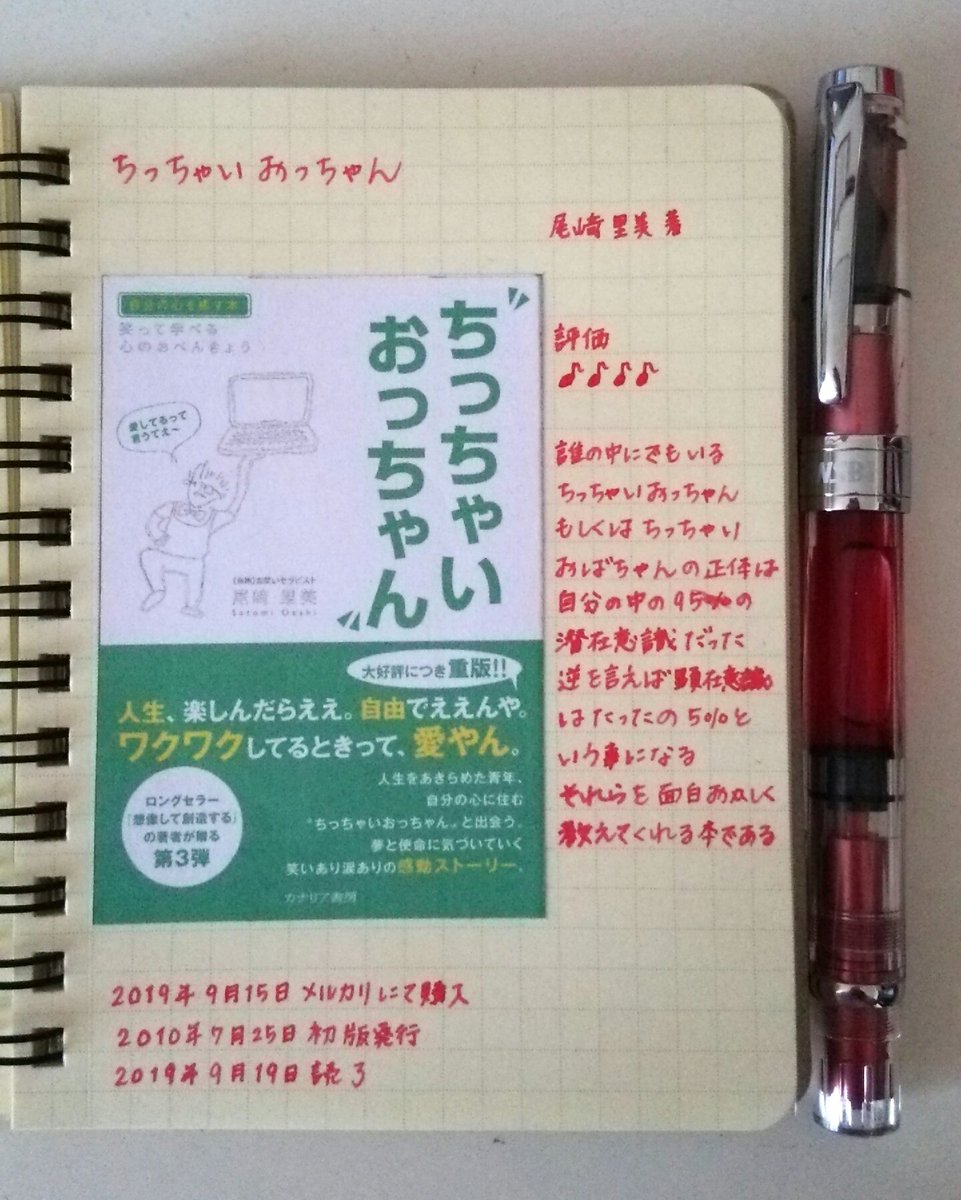 ちっちゃい おっちゃん
尾崎 里美 著
自分の心を癒す本
笑って学べる
心のおべんきょう
愛してるって
言うてえ〜
ちっちゃい
おっちゃん
尾﨑 里美
Satomi Ozaki
大好評につき重版!!
人生、楽しんだらええ。自由でええんや。
ワクワクしてるときって、愛やん。
ロングセラー
「想像して創造する」
の著者が贈る
第3弾
人生をあきらめた青年、
自分の心に住む
“ちっちゃいおっちゃん„と出会う。
夢と使命に気づいていく
笑いあり涙ありの感動ストーリー。
カナリア書房
評価
♪♪♪♪
誰の中にでもいる
ちっちゃいおっちゃん
もしくは ちっちゃい
おばちゃんの正体は
自分の中の95%の
潜在意識だった
逆を言えば顕在意識。
はたったの5%と
いう事になる
それらを面白おかしく
教えてくれる本である
2019年9月15日 メルカリにて購入
2010年7月25日 初版発行
2019年9月19日 読了